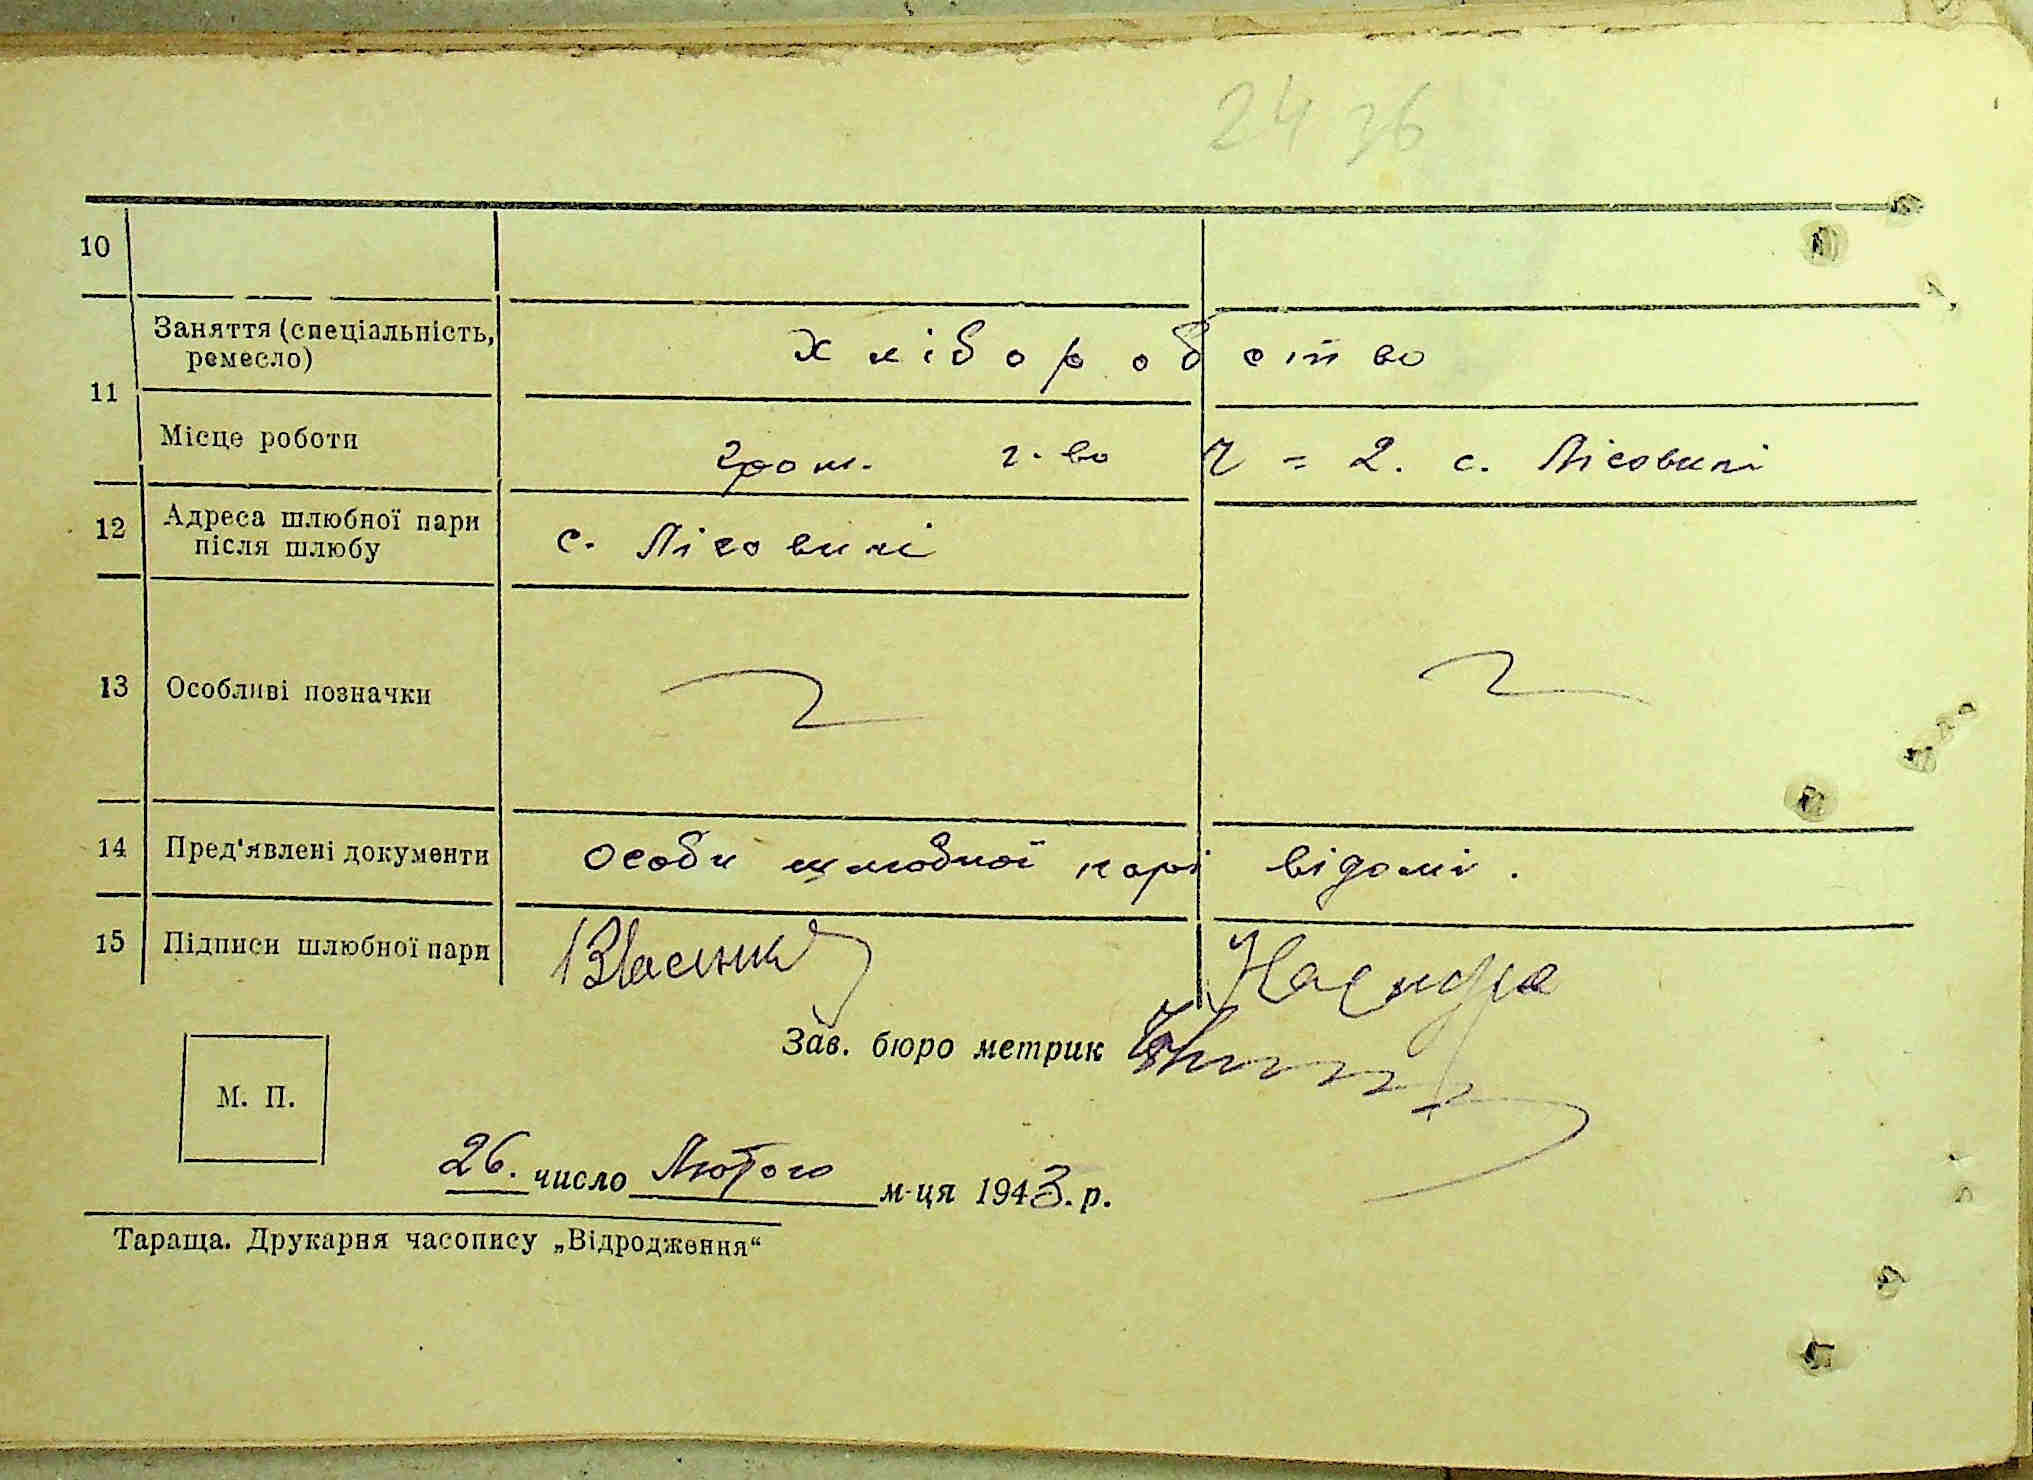 24 36
10
Заняття (спеціальність, ремесло) Хліборобство
11
Місце роботи гром. г-во ч = 2. с. Лісовичі
12 Адреса шлюбної пари після шлюбу с. Лісовичі
13 Особливі позначки
14 Пред'явлені документи Особи шлюбної парі відомі.
15 Підписи шлюбної пари
Зав. бюро метрик
М. П.
26. число Лютого м-ця 1943. р.
Тараща. Друкарня часопису „Відродження“